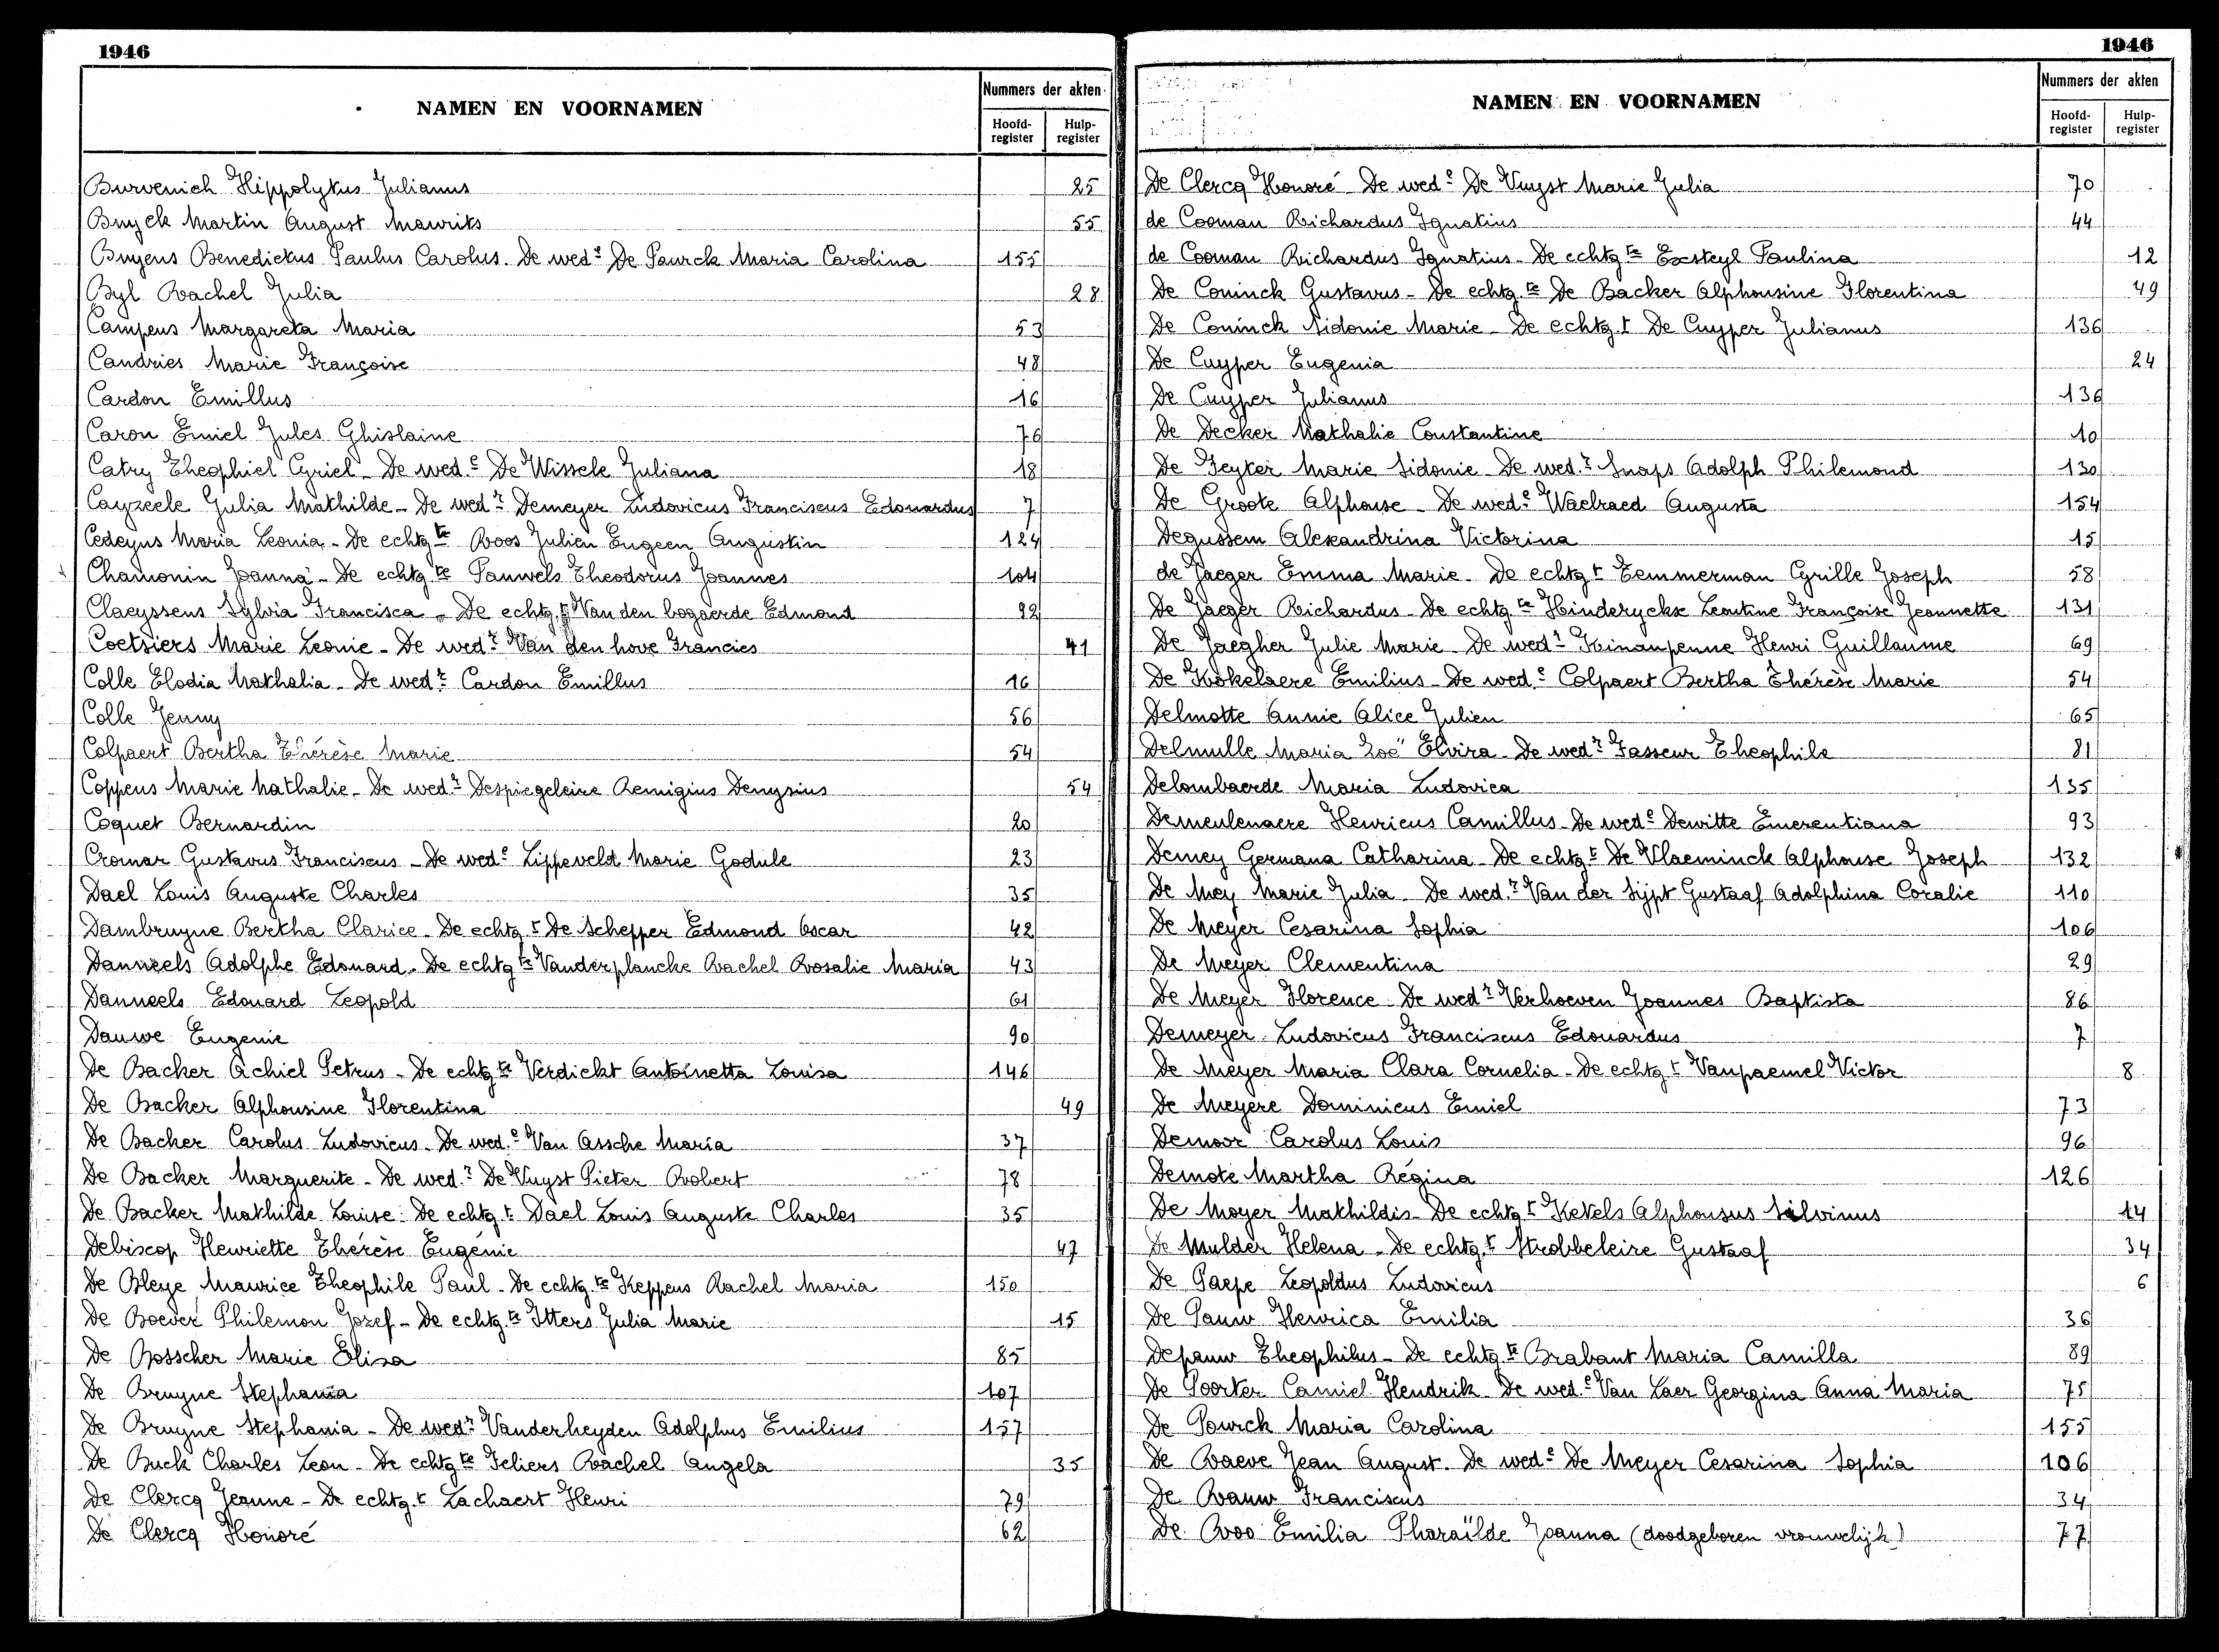 1946
NAMEN EN VOORNAMEN
Nummers der akten
Hoofd-register Hulp-register
Burvenich Hippolytus Julianus 25
Buyck Martin August Maurits 55
Buyens Benedictus Paulus Carolus. De wed.e De Pourck Maria Carolina 155
Byl Rachel Julia 28
Campens Margareta Maria 53
Candries Marie Françoise 48
Cardon Emillus 16
Caron Emiel Jules Ghislaine 76
Catry Theophiel Cyriel - De wed.e De Wissele Juliana 18
Cayzeele Julia Mathilde - De wed.r Demeyer Ludovicus Franciscus Edouardus 7
Cedeyns Maria Leonia - De echtg.te Roos Julien Eugeen Augustin 124
Chamonin Joanna - De echtg.te Pauwels Theodorus Joannes 104
Claeyssens Sylvia Francisca - De echtg.t Van den bogaerde Edmond 92
Coetsiers Marie Leonie - De wed.r Van den hove Francies 41
Colle Elodia Nathalia - De wed.r Cardon Emillus 16
Colle Jenny 56
Colpaert Bertha Thérèse Marie 54
Coppens Marie Nathalie - De wed.r Despiegeleire Remigius Denysius 54
Coquet Bernardin 20
Cromar Gustavus Franciscus - De wed.e Lippeveld Marie Godule 23
Dael Louis Auguste Charles 35
Dambruyne Bertha Clarice - De echtg.t De Schepper Edmond Oscar 42
Danneels Adolphe Edouard - De echtg.te Vanderplancke Rachel Rosalie Maria 43
Danneels Edouard Leopold 61
Dauwe Eugenie 90
De Backer Achiel Petrus - De echtg.te Verdickt Antoinetta Louisa 146
De Backer Alphonsine Florentina 49
De Backer Carolus Ludovicus - De wed.e Van Assche Maria 37
De Backer Marguerite - De wed.r De Vuyst Pieter Robert 78
De Backer Mathilde Louise: De echtg.t Dael Louis Auguste Charles 35
Debiscop Henriette Thérèse Eugénie 47
De Bleye Maurice Theophile Paul - De echtg.te Keppens Rachel Maria 150
De Boever Philemon Jozef - De echtg.te Itters Julia Marie 15
De Bosscher Marie Elisa 85
De Bruyne Stephania 107
De Bruyne Stephania - De wed.r Vanderheyden Adolphus Emilius 157
De Buck Charles Leon - De echtg.te Feliers Rachel Angela 35
De Clercq Jeanne - De echtg.t Lachaert Henri 79
De Clercq Honoré 62
1946
NAMEN EN VOORNAMEN
Nummers der akten
Hoofd-register Hulp-register
De Clercq Honoré - De wed.e De Vuyst Marie Julia 70
de Cooman Richardus Ignatius 44
de Cooman Richardus Ignatius - De echtg.te Exsteyl Paulina 12
De Coninck Gustavus - De echtg.te De Backer Alphonsine Florentina 49
De Coninck Sidonie Marie - De echtg.t De Cuyper Julianus 136
De Cuyper Eugenia 24
De Cuyper Julianus 136
De Decker Nathalie Constantine 10
De Geyter Marie Sidonie - De wed.r Snaps Adolph Philemond 130
De Groote Alphonse - De wed.e Waelraed Augusta 154
Degussem Alexandrina Victorina 15
de Jaeger Emma Marie - De echtg.t Temmerman Cyrille Joseph 58
De Jaeger Richardus - De echtg.te Hinderyckx Leontine Françoise Jeannette 131
De Jaegher Julie Marie - De wed.r Hinaupenne Henri Guillaume 69
De Kokelaere Emilius - De wed.e Colpaert Bertha Thérèse Marie 54
Delmotte Annie Alice Julien 65
Delmulle Maria Zoë Elvira - De wed.r Fasseur Theophile 81
Delombaerde Maria Ludovica 135
Demeulenaere Henricus Camillus - De wed.e Dewitte Emerentiana 93
Demey Germana Catharina - De echtg.t De Vlaeminck Alphonse Joseph 132
De Mey Marie Julia - De wed.r Van der Sijpt Gustaaf Adolphina Coralie 110
De Meyer Cesarina Sophia 106
De Meyer Clementina 29
De Meyer Florence De wed.r Verhoeven Joannes Baptista 86
Demeyer Ludovicus Franciscus Edouardus 7
De Meyer Maria Clara Cornelia - De echtg.t Vanpaemel Victor 8
De Meyere Dominicus Emiel 73
Demoor Carolus Louis 96
Demote Martha Régina 126
De Moyer Mathildis - De echtg.t Ketels Alphonsus Silvinus 14
De Mulder Helena - De echtg.t Strobbeleire Gustaaf 34
De Paepe Leopoldus Ludovicus 6
De Pauw Henrica Emilia 36
Depauw Theophilus - De echtg.te Brabant Maria Camilla 89
De Poorter Camiel Hendrik De wed.e Van Laer Georgina Anna Maria 75
De Pourck Maria Carolina 155
De Raeve Jean August. De wed.e De Meyer Cesarina Sophia 106
De Rauw Franciscus 34
De Roo Emilia Pharaïlde Joanna (doodgeboren vrouwelijk) 77